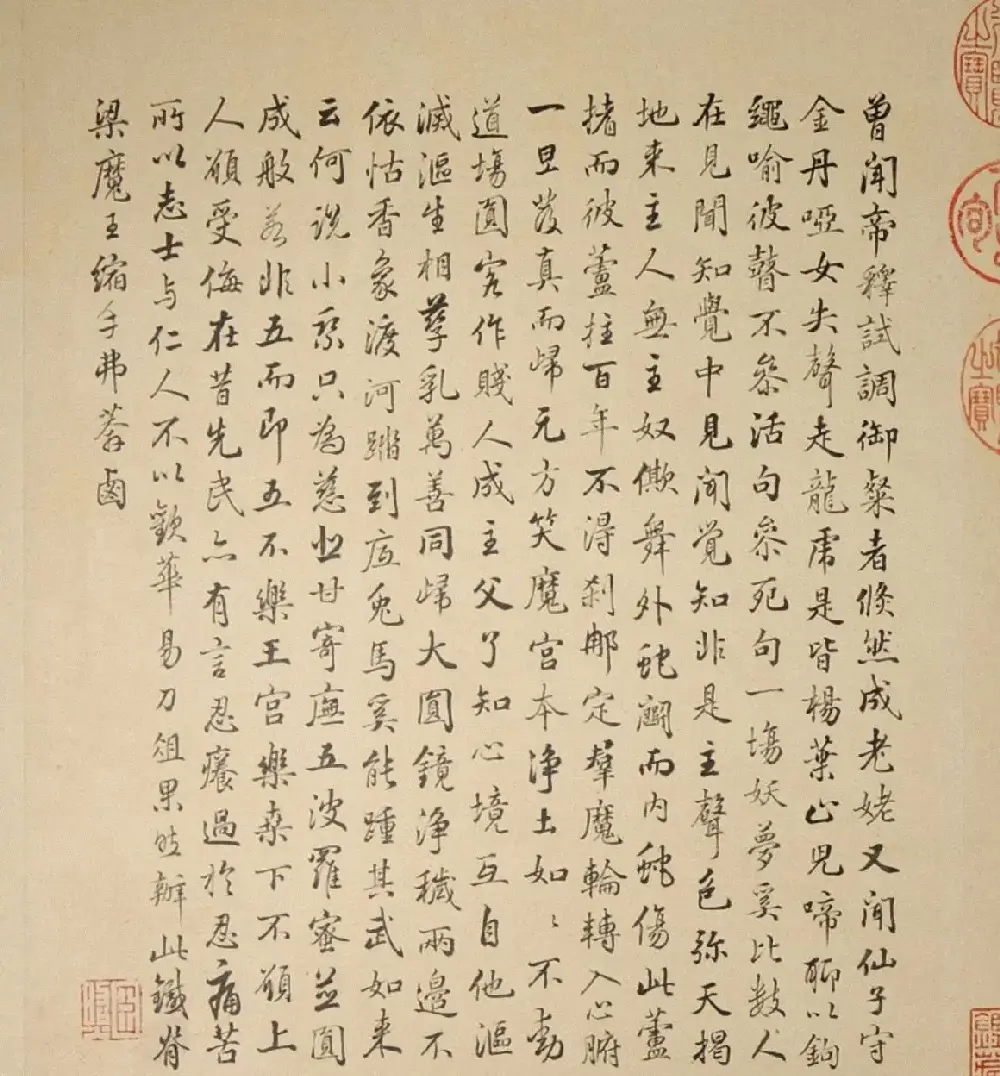 曾聞帝釋試調御粲者倏然成老姥又聞仙子守
金丹啞女失聲走龍虎是皆楊葉止兒啼聊以鉤
繩喻彼瞽不叅活句叅死句一塲妖夢奚比數人
在見聞知覺中見聞覺知非是主聲色弥天揭
地来主人無主奴僛舞外蛇鬭而内蛇傷此蘆
揩而彼蘆拄百年不得刹那定羣魔輪轉入心腑
一旦發真而歸元方笑魔宮本淨土如〻不動
道塲圓客作賤人成主父了知心境互自他漚
滅漚生相孳乳萬善同歸大圓鏡淨穢兩邊不
依怙香象渡河蹋到底兔馬奚能踵其武如来
云何説小乘只為慈悲甘寄廡五波羅密並圓
成般若非五而即五不樂王宮樂桑下不願上
人願受侮在昔先民亦有言忍癢過於忍痛苦
所以志士与仁人不以歡華易刀俎果然辦此鐵脊
梁魔王縮手弗莽鹵